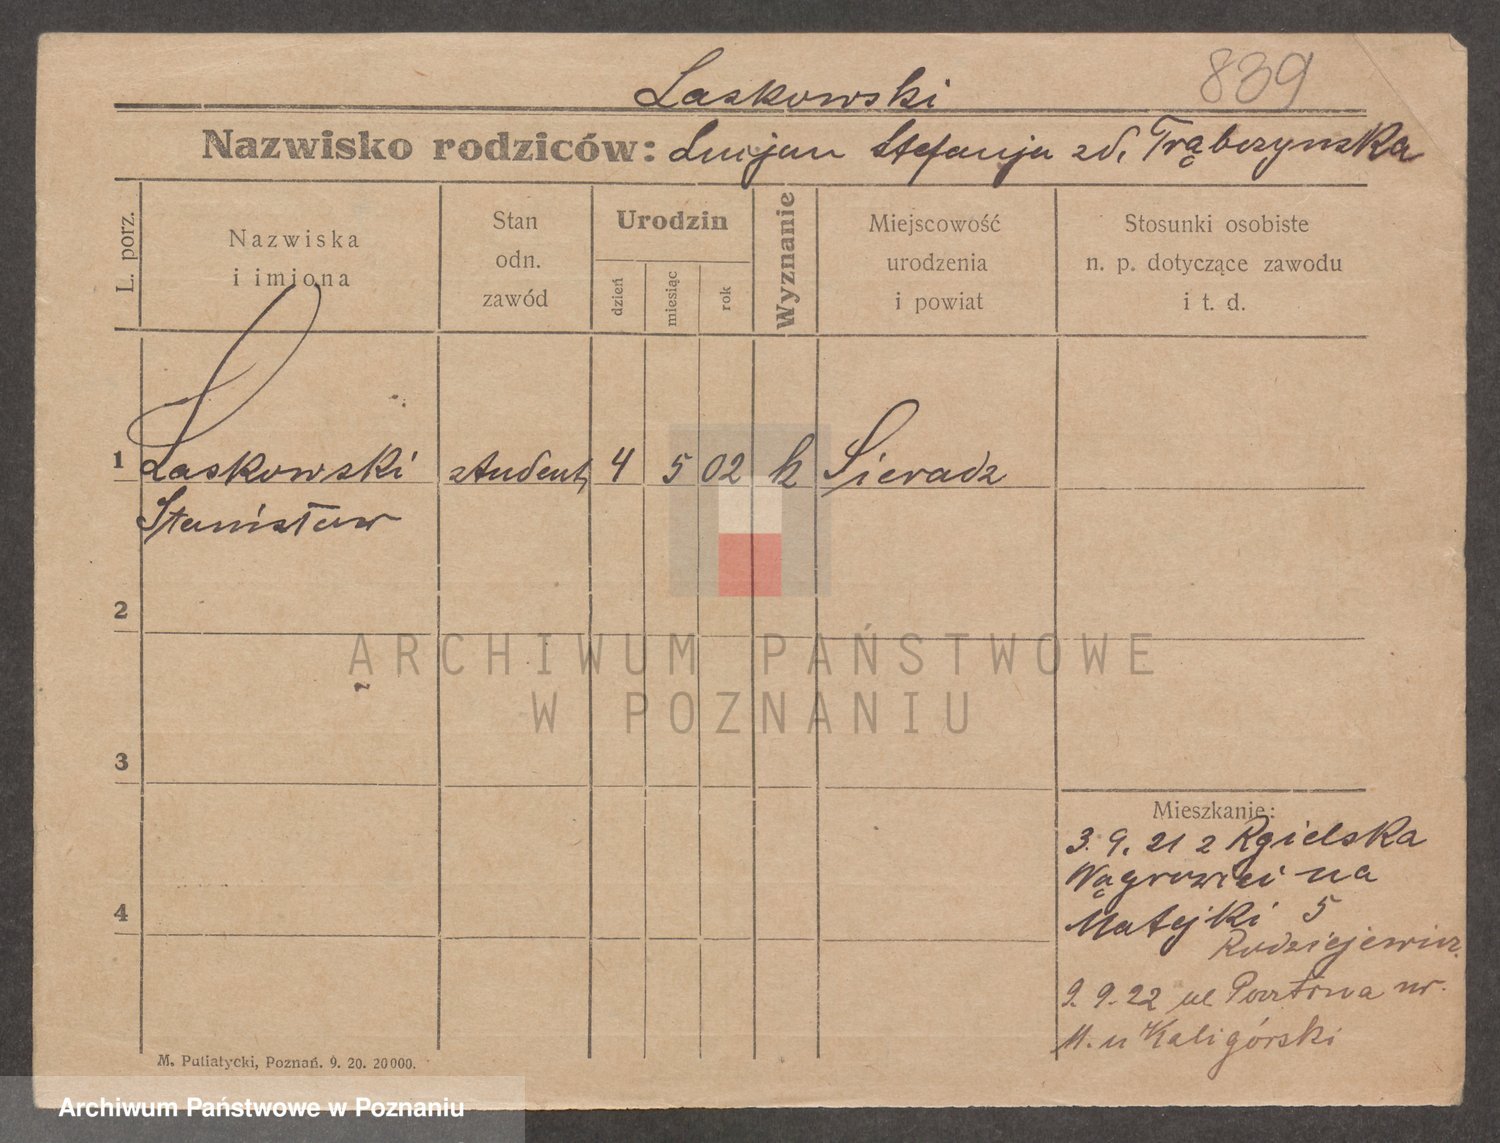 839
Laskowski
Nazwisko rodziców: Lucjan Stefanja zd. Trąbczynska
L. porz.
Nazwiska
i imiona
Stan
odn.
zawód
Urodzin
dzień
miesiąc
rok
Wyznanie
Miejscowość
urodzenia
i powiat
Stosunki osobiste
n. p. dotyczące zawodu
i t. d.
1 Laskowski student 4 5 02 k Sieradz
Stanisław
2
ARCHIWUM PAŃSTWOWE
W POZNANIU
3
Mieszkanie:
3. 9. 21 z Rgielska
Wągrowiei na
4
Matejki 5
Rodziejewicz.
9. 9. 22 ul Pocztowa nr.
11. u Kaligórski
M. Putiatycki, Poznań. 9. 20. 20000.
Archiwum Państwowe w Poznaniu